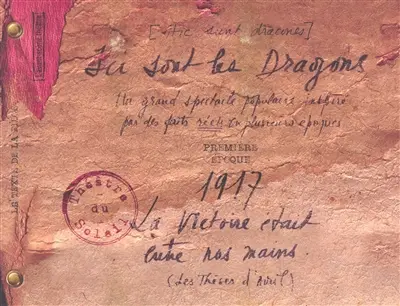 [Hic sunt dracones]
Ici sont les Dragons
Un grand spectacle populaire inspiré
par des faits réels en plusieurs époques
PREMIÈRE
ÉPOQUE
1917
La Victoire était
entre nos mains.
(Les Thèses d'Avril)
Théâtre
du
Soleil
LE TEXTE DE LA